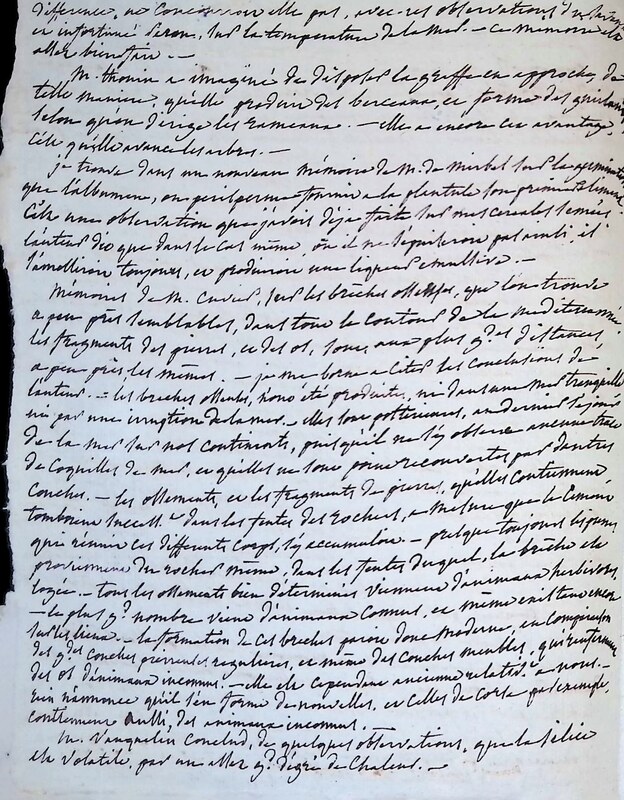 différence, ne concourrait elle pas, avec les observations
et infortuné Peron, sur la température de la mer. — ce mémoire est
assez bien fait. —
M. Thouin a imaginé de disposer la greffe en approche, de
telle manière, qu'elle produit des berceaux, et forme des guirlandes
selon qu'on dirige les rameaux. — elle a encore cet avantage,
c'est qu'elle avance les arbres. —
je trouve dans un nouveau mémoire de M. de Mirbel sur la germination
que l'albumen, ou perisperme fournit a la plantule son premier aliment.
C'est une observation que j'avois deja faite sur mes cereales semées
l'auteur dit que dans le cas même, où il ne s'épuiseroit pas ainsi, il
s'amolliroit toujours, et produiroit une liqueur émulsive. —
Mémoires de M. Cuvier, sur les brêches osseuses, que l'on trouve
a peu près semblables, dans tout le contour de la méditerranée
les fragments des pierres, et des os, sont, aux plus gdes distances,
a peu près les mêmes. — je me borne a citer les conclusions de
l'auteur. — les brêches osseuses, n'ont été produites, ni dans une mer tranquille
ni par une irruption de la mer. — elles sont postérieures, au dernier séjour
de la mer sur nos continents, puisqu'il ne s'y observe aucune trace
de coquilles de mer, et qu'elles ne sont point recouvertes par d'autres
couches. — les ossements, et les fragments de pierres, qu'elles contiennent
tomboient successt dans les fentes des rochers, a mesure que le ciment
qui réunit ces différents corps, s'y accumuloit. — presque toujours les pierres
proviennent du rocher même, dans les fentes duquel, la brêche est
logée. — tous les ossements bien déterminés viennent d'animaux herbivores,
— le plus gd nombre vient d'animaux connus, et même existants encor
sur les lieux. — la formation de ces brêches paroit donc moderne, en comparaison
des gdes couches pierreuses regulieres, et même des couches meubles, qui renferment
des os d'animaux inconnus. — elle est cependant ancienne relativt a nous. —
rien n'annonce qu'il s'en forme de nouvelles, et celles de Corse par exemple,
contiennent aussi, des animaux inconnus. —
M. Vauquelin conclud, de quelques observations, que la silice
est volatile, par un assez gd dégré de chaleur. —